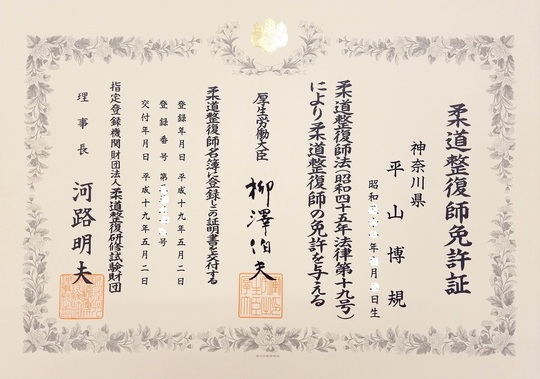 柔道整復師免許証
神奈川県
平山博規
昭和 年 月 日生
柔道整復師法(昭和四十五年法律第十九号)
により柔道整復師の免許を与える
厚生労働大臣 柳澤伯夫
柔道整復師名簿に登録しこの証明書を交付する
登録年月日 平成十九年五月二日
登録番号 第 号
交付年月日 平成十九年五月二日
指定登録機関財団法人柔道整復研修試験財団
理事長 河路明夫